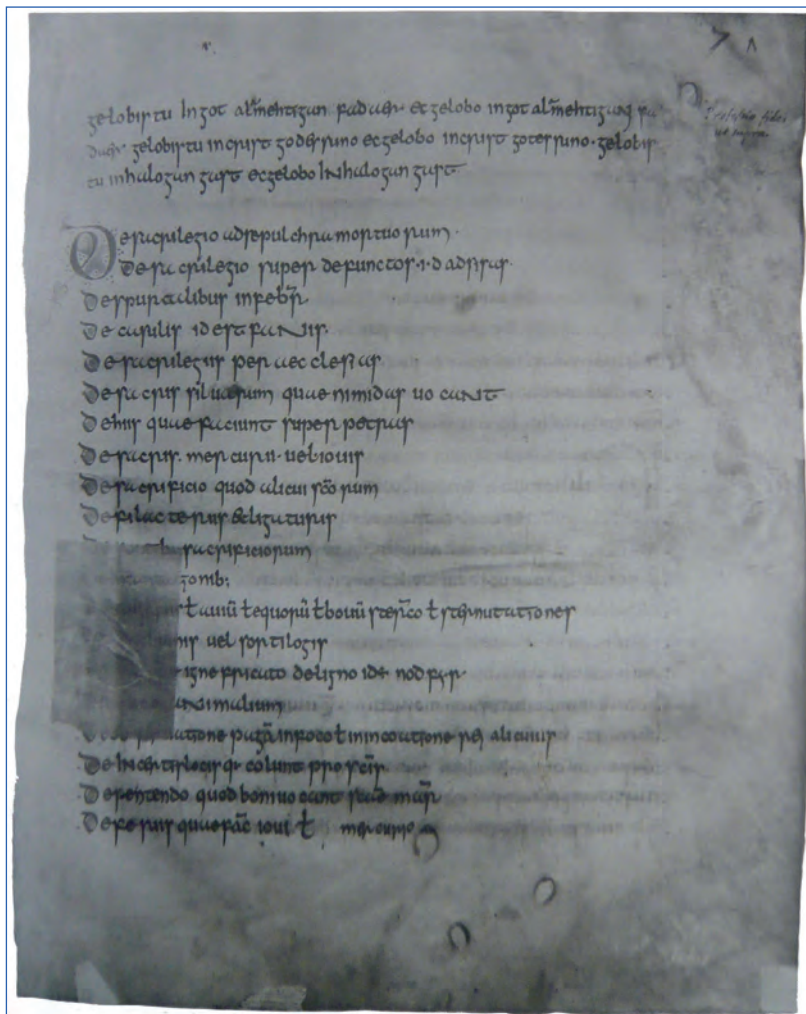 gelobistu Ingot almehtigan fadaer ec gelobo ingot almehtigan fa
daer gelobistu incrist godes suno ec gelobo incrist gotes suno. gelobis
tu inhalogan gast ec gelobo INhalogan gast.
ut supra
De sacrilegio ad sepulchra mortuorum.
De sacrilegio super defunctos .i.d adsisas.
De spurcalibus in febr̄
De casulis id est faNis.
De sacrilegiis per aecclesias.
De sacris siluarum quae nimidas uocaNt
De hiis quae faciunt super petras
De sacris. mercurii. uel iouis
De sacrificio quod alicui sc̄orum
De filacteriis & ligaturis
sacrificiorum
ł auiū ł equorū ł bouū sterco ł sternutationes
uel sortilogis
igne fricato de ligno idē nodfyr.
aNimalium
pagā in foco ł in incoatione rei alicuius
De Incertis locis q̄ colunt pro sc̄is
De petendo quod boni uocant sc̄ae mar̄
De feriis quae fac̄ ioui ł mercurio